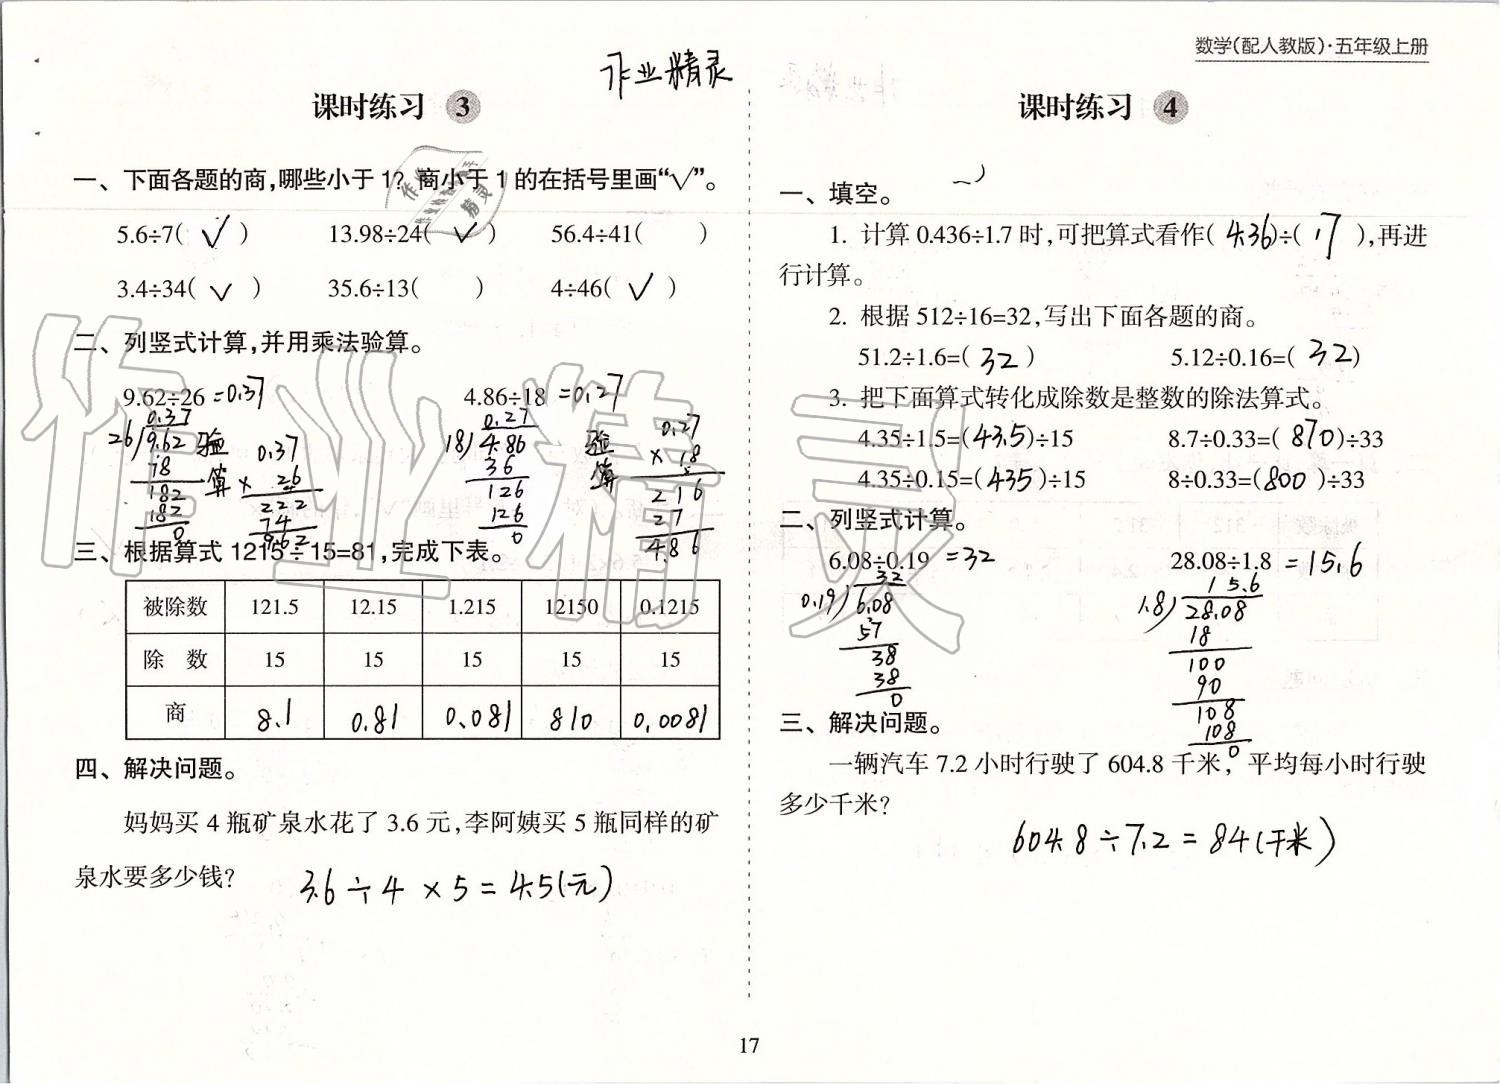 数学(配人教版)·五年级上册
作业精灵
课时练习 3
一、下面各题的商,哪些小于1?商小于1的在括号里画“√”。
5.6÷7( √ ) 13.98÷24( √ ) 56.4÷41( )
3.4÷34( √ ) 35.6÷13( ) 4÷46( √ )
二、列竖式计算,并用乘法验算。
9.62÷26 =0.37 4.86÷18 =0.27
0.37
26)9.62
78
182
182
0
验算
0.37
× 26
222
74
9.62
0.27
18)4.86
36
126
126
0
验算
0.27
× 18
216
27
4.86
三、根据算式1215÷15=81,完成下表。
被除数 121.5 12.15 1.215 12150 0.1215
除 数 15 15 15 15 15
商 8.1 0.81 0.081 810 0.0081
四、解决问题。
妈妈买4瓶矿泉水花了3.6元,李阿姨买5瓶同样的矿
泉水要多少钱?
3.6÷4×5=4.5(元)
课时练习 4
一、填空。
1. 计算0.436÷1.7时,可把算式看作( 4.36 )÷( 17 ),再进
行计算。
2. 根据512÷16=32,写出下面各题的商。
51.2÷1.6=( 32 ) 5.12÷0.16=( 32 )
3. 把下面算式转化成除数是整数的除法算式。
4.35÷1.5=( 43.5 )÷15 8.7÷0.33=( 870 )÷33
4.35÷0.15=( 435 )÷15 8÷0.33=( 800 )÷33
二、列竖式计算。
6.08÷0.19 =32 28.08÷1.8 =15.6
32
0.19)6.08
57
38
38
0
15.6
1.8)28.08
18
100
90
108
108
0
三、解决问题。
一辆汽车7.2小时行驶了604.8千米,平均每小时行驶
多少千米?
604.8÷7.2=84(千米)
17
作业精灵